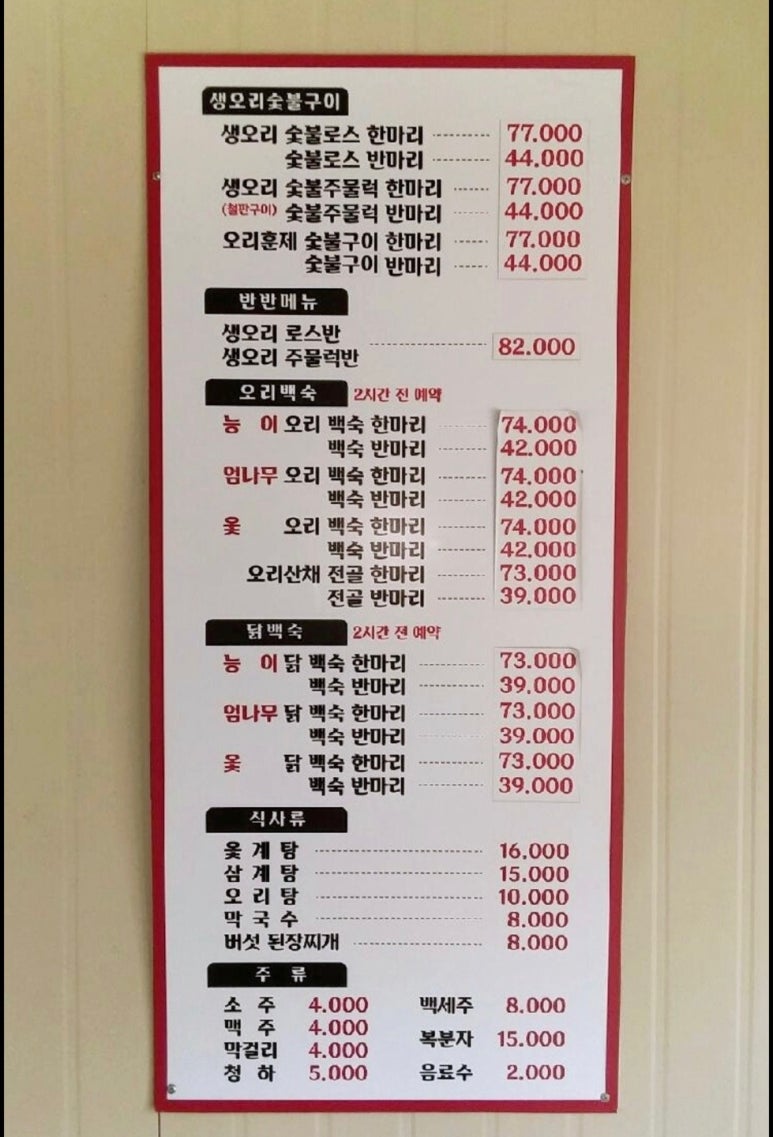 생오리숯불구이
생오리 숯불로스 한마리 77.000
숯불로스 반마리 44.000
생오리 숯불주물럭 한마리 77.000
(철판구이) 숯불주물럭 반마리 44.000
오리훈제 숯불구이 한마리 77.000
숯불구이 반마리 44.000
반반메뉴
생오리 로스반
생오리 주물럭반 82.000
오리백숙 2시간 전 예약
능 이 오리 백숙 한마리 74.000
백숙 반마리 42.000
엄나무 오리 백숙 한마리 74.000
백숙 반마리 42.000
옻 오리 백숙 한마리 74.000
백숙 반마리 42.000
오리산채 전골 한마리 73.000
전골 반마리 39.000
닭백숙 2시간 전 예약
능 이 닭 백숙 한마리 73.000
백숙 반마리 39.000
엄나무 닭 백숙 한마리 73.000
백숙 반마리 39.000
옻 닭 백숙 한마리 73.000
백숙 반마리 39.000
식사류
옻 계 탕 16.000
삼 계 탕 15.000
오 리 탕 10.000
막 국 수 8.000
버섯 된장찌개 8.000
주 류
소 주 4.000
맥 주 4.000
막걸리 4.000
청 하 5.000
백세주 8.000
복분자 15.000
음료수 2.000